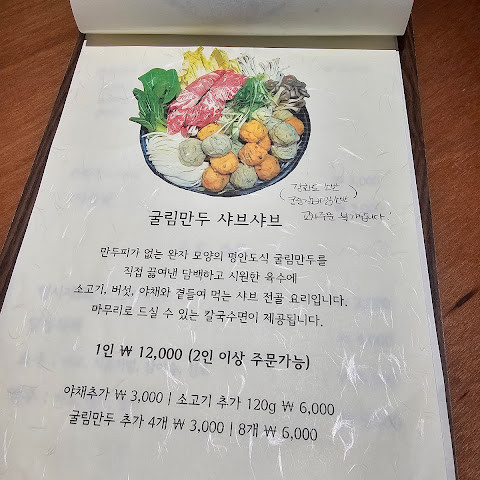 굴림만두 샤브샤브
만두피가 없는 완자 모양의 평안도식 굴림만두를
직접 끓여낸 담백하고 시원한 육수에
소고기, 버섯, 야채와 곁들여 먹는 샤브 전골 요리입니다.
마무리로 드실 수 있는 칼국수면이 제공됩니다.
1인 ₩ 12,000 (2인 이상 주문가능)
야채추가 ₩ 3,000 | 소고기 추가 120g ₩ 6,000
굴림만두 추가 4개 ₩ 3,000 | 8개 ₩ 6,000